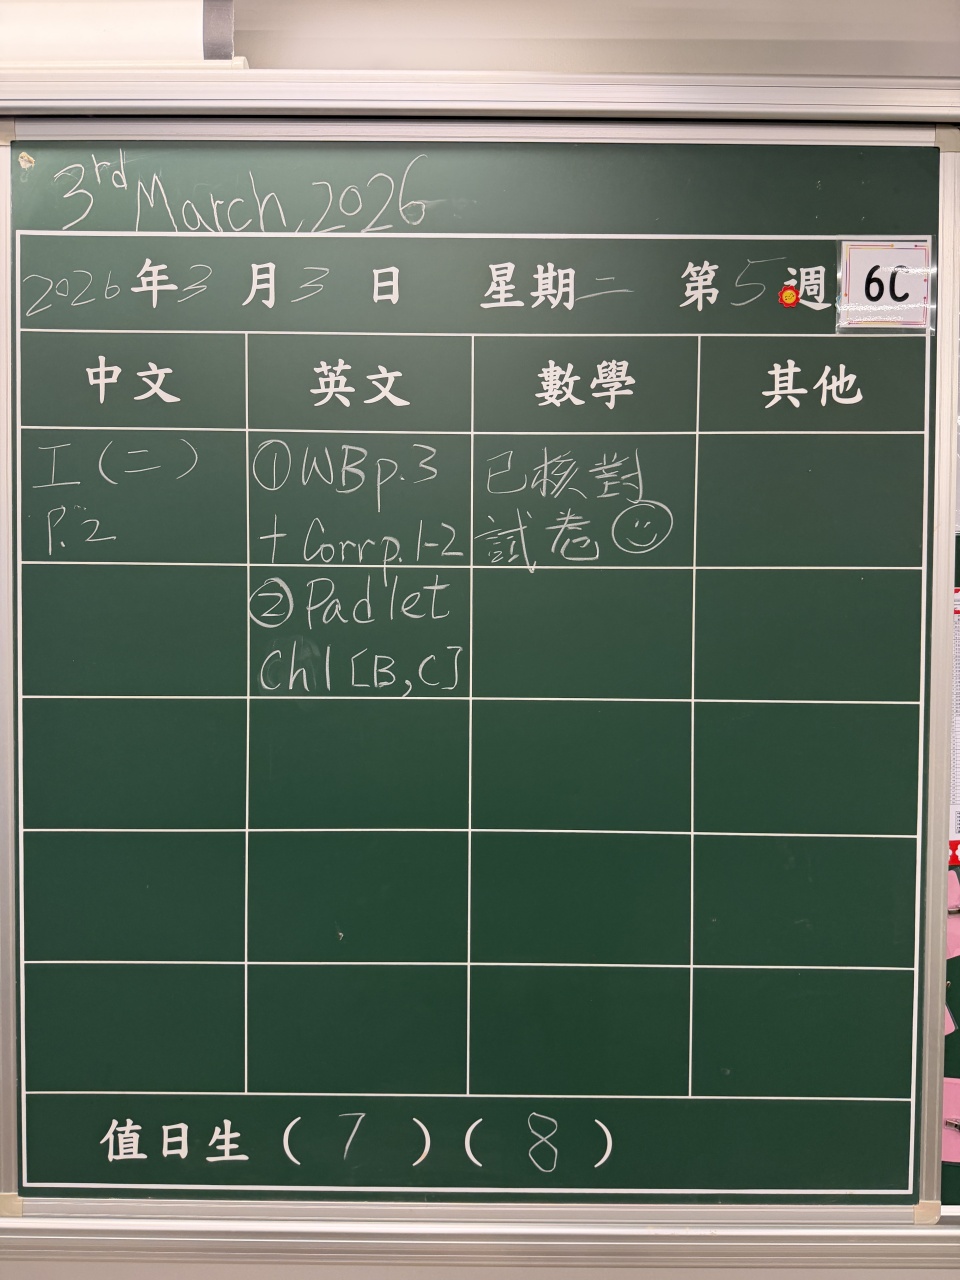 3rd March, 2026
2026年3月3日 星期二 第5週 6C
中文 英文 數學 其他
工(二)
P.2
①WB p.3
+ Corr p.1-2
②Padlet
Ch1 [B,C]
已核對
試卷
值日生(7)(8)